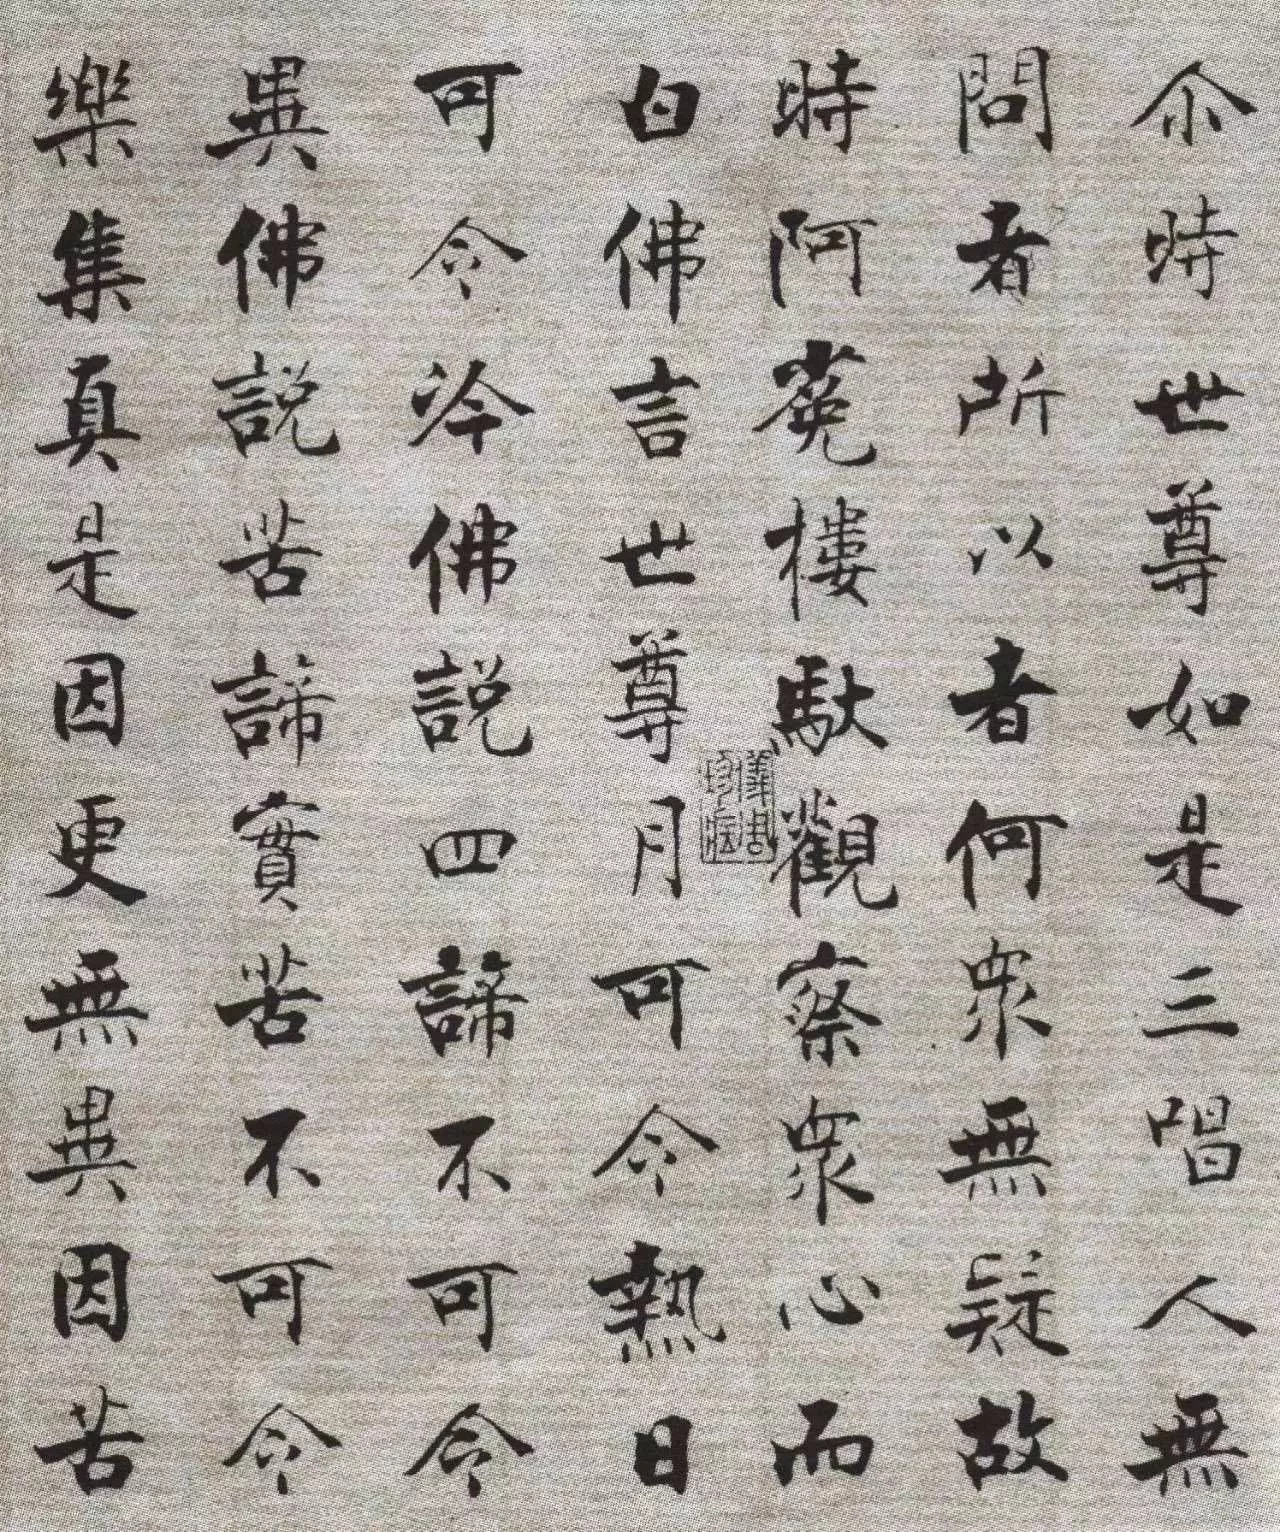 尒時世尊如是三唱人無
問者所以者何衆無疑故
時阿菟樓馱觀察衆心而
白佛言世尊月可令熱日
可令冷佛説四諦不可令
異佛説苦諦實苦不可令
樂集真是因更無異因苦
儀周珍藏